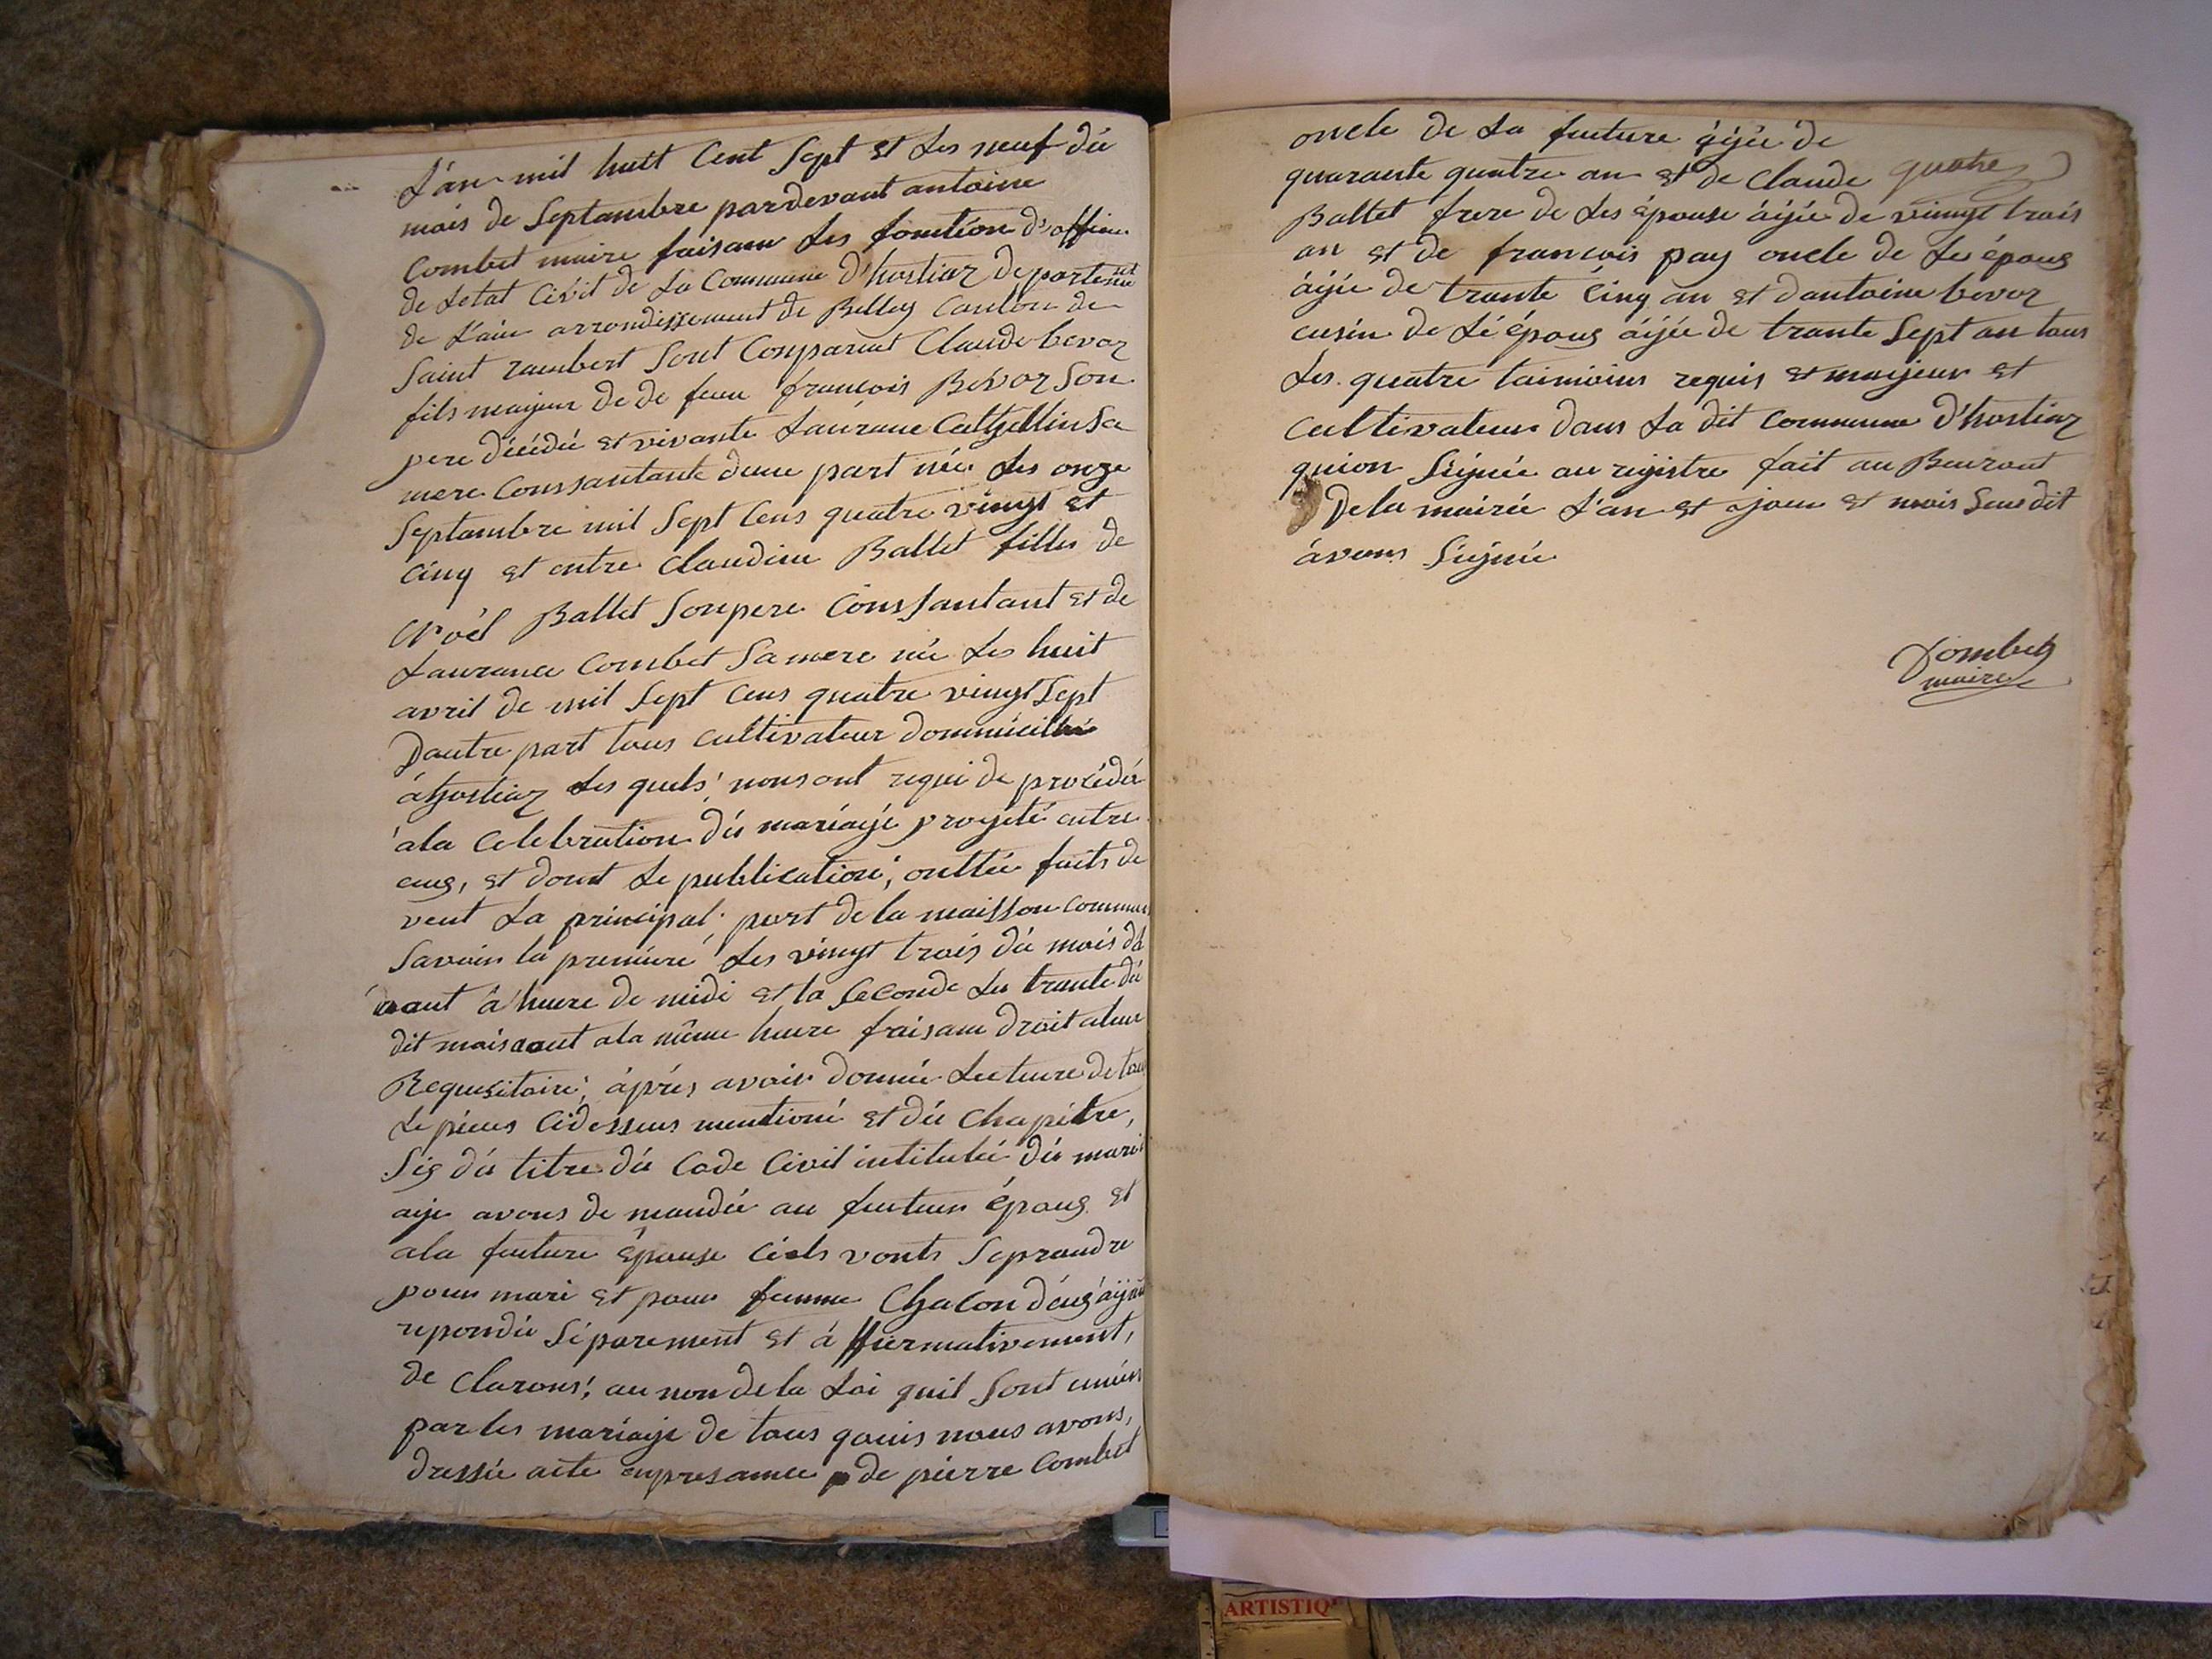 L'an mil huit Cent Sept et Les neuf dú
mois de Septambre pardevant antoine
Combet maire faisam Les fonction d'officie
de Letat Civil de La Commune d'hostiaz departement
de L'ain arrondissement de Belley Canton de
Saint rambert Sont Conparent Claude bevoz
fils majeur de de feu francois Bévoz Son
pere décédé et vivante Laurance Cathellin Sa
mere Conssantante dune part née Les onze
Septambre mil Sept Cens quatre vingt et
Cinq et entre Claudine Ballet filles de
Noël Ballet Sonpere Conssantant et de
Laurance Combet Samere née Les huit
avril de mil Sept Cens quatre vingt Sept
Dautre part tous cultivateur dommicillié
áhostiaz Les quels nous ont requi de procédér
ála Celebration dú mariage progété entre
eus, et dont Le publication, onttée faits de
vent La principal port de la maisson commune
Savoir la premiere Les vingt trois dú mois dá
aout á heure de midi et la Seconde Les trante dú
dit mois aout ala même heure faisam droit aleur
Requisitoire, áprés avoir donnée Lecture de tous
Le piéces Cidessus mentioné et dú Chapitre,
Sis dú titre dú Code Civil intitulée dú mari
age avons de mandée au futeur épous et
ala future épouse Ciels vonts Seprandre
pour mari et pour femme Chacon déus áyant
repondú Séparement et á ffirmativement,
de Clarons, au nom de la Loi quil Sont unies
par les mariage de tous qouis nous avons,
dressée acte enpresance de pierre Combet
oncle de La future ágée de
quarante quatre an et de Claude quatre
Ballet frere de Les épouse ágée de vingt trois
an et de francois pay oncle de Les épous
ágée de trante Cinq an et dantoine bevoz
cusin de Lé épous ágée de trante Sept an tous
Les quatre taimoins requis et majeur et
Cultivateur dans La dit Commune d'hostiaz
quion Signée au régistre fait au Beuraut
De la mairie L'an et ajour et mois Sus dit
ávons Signée
Combet
maire
ARTISTIQ